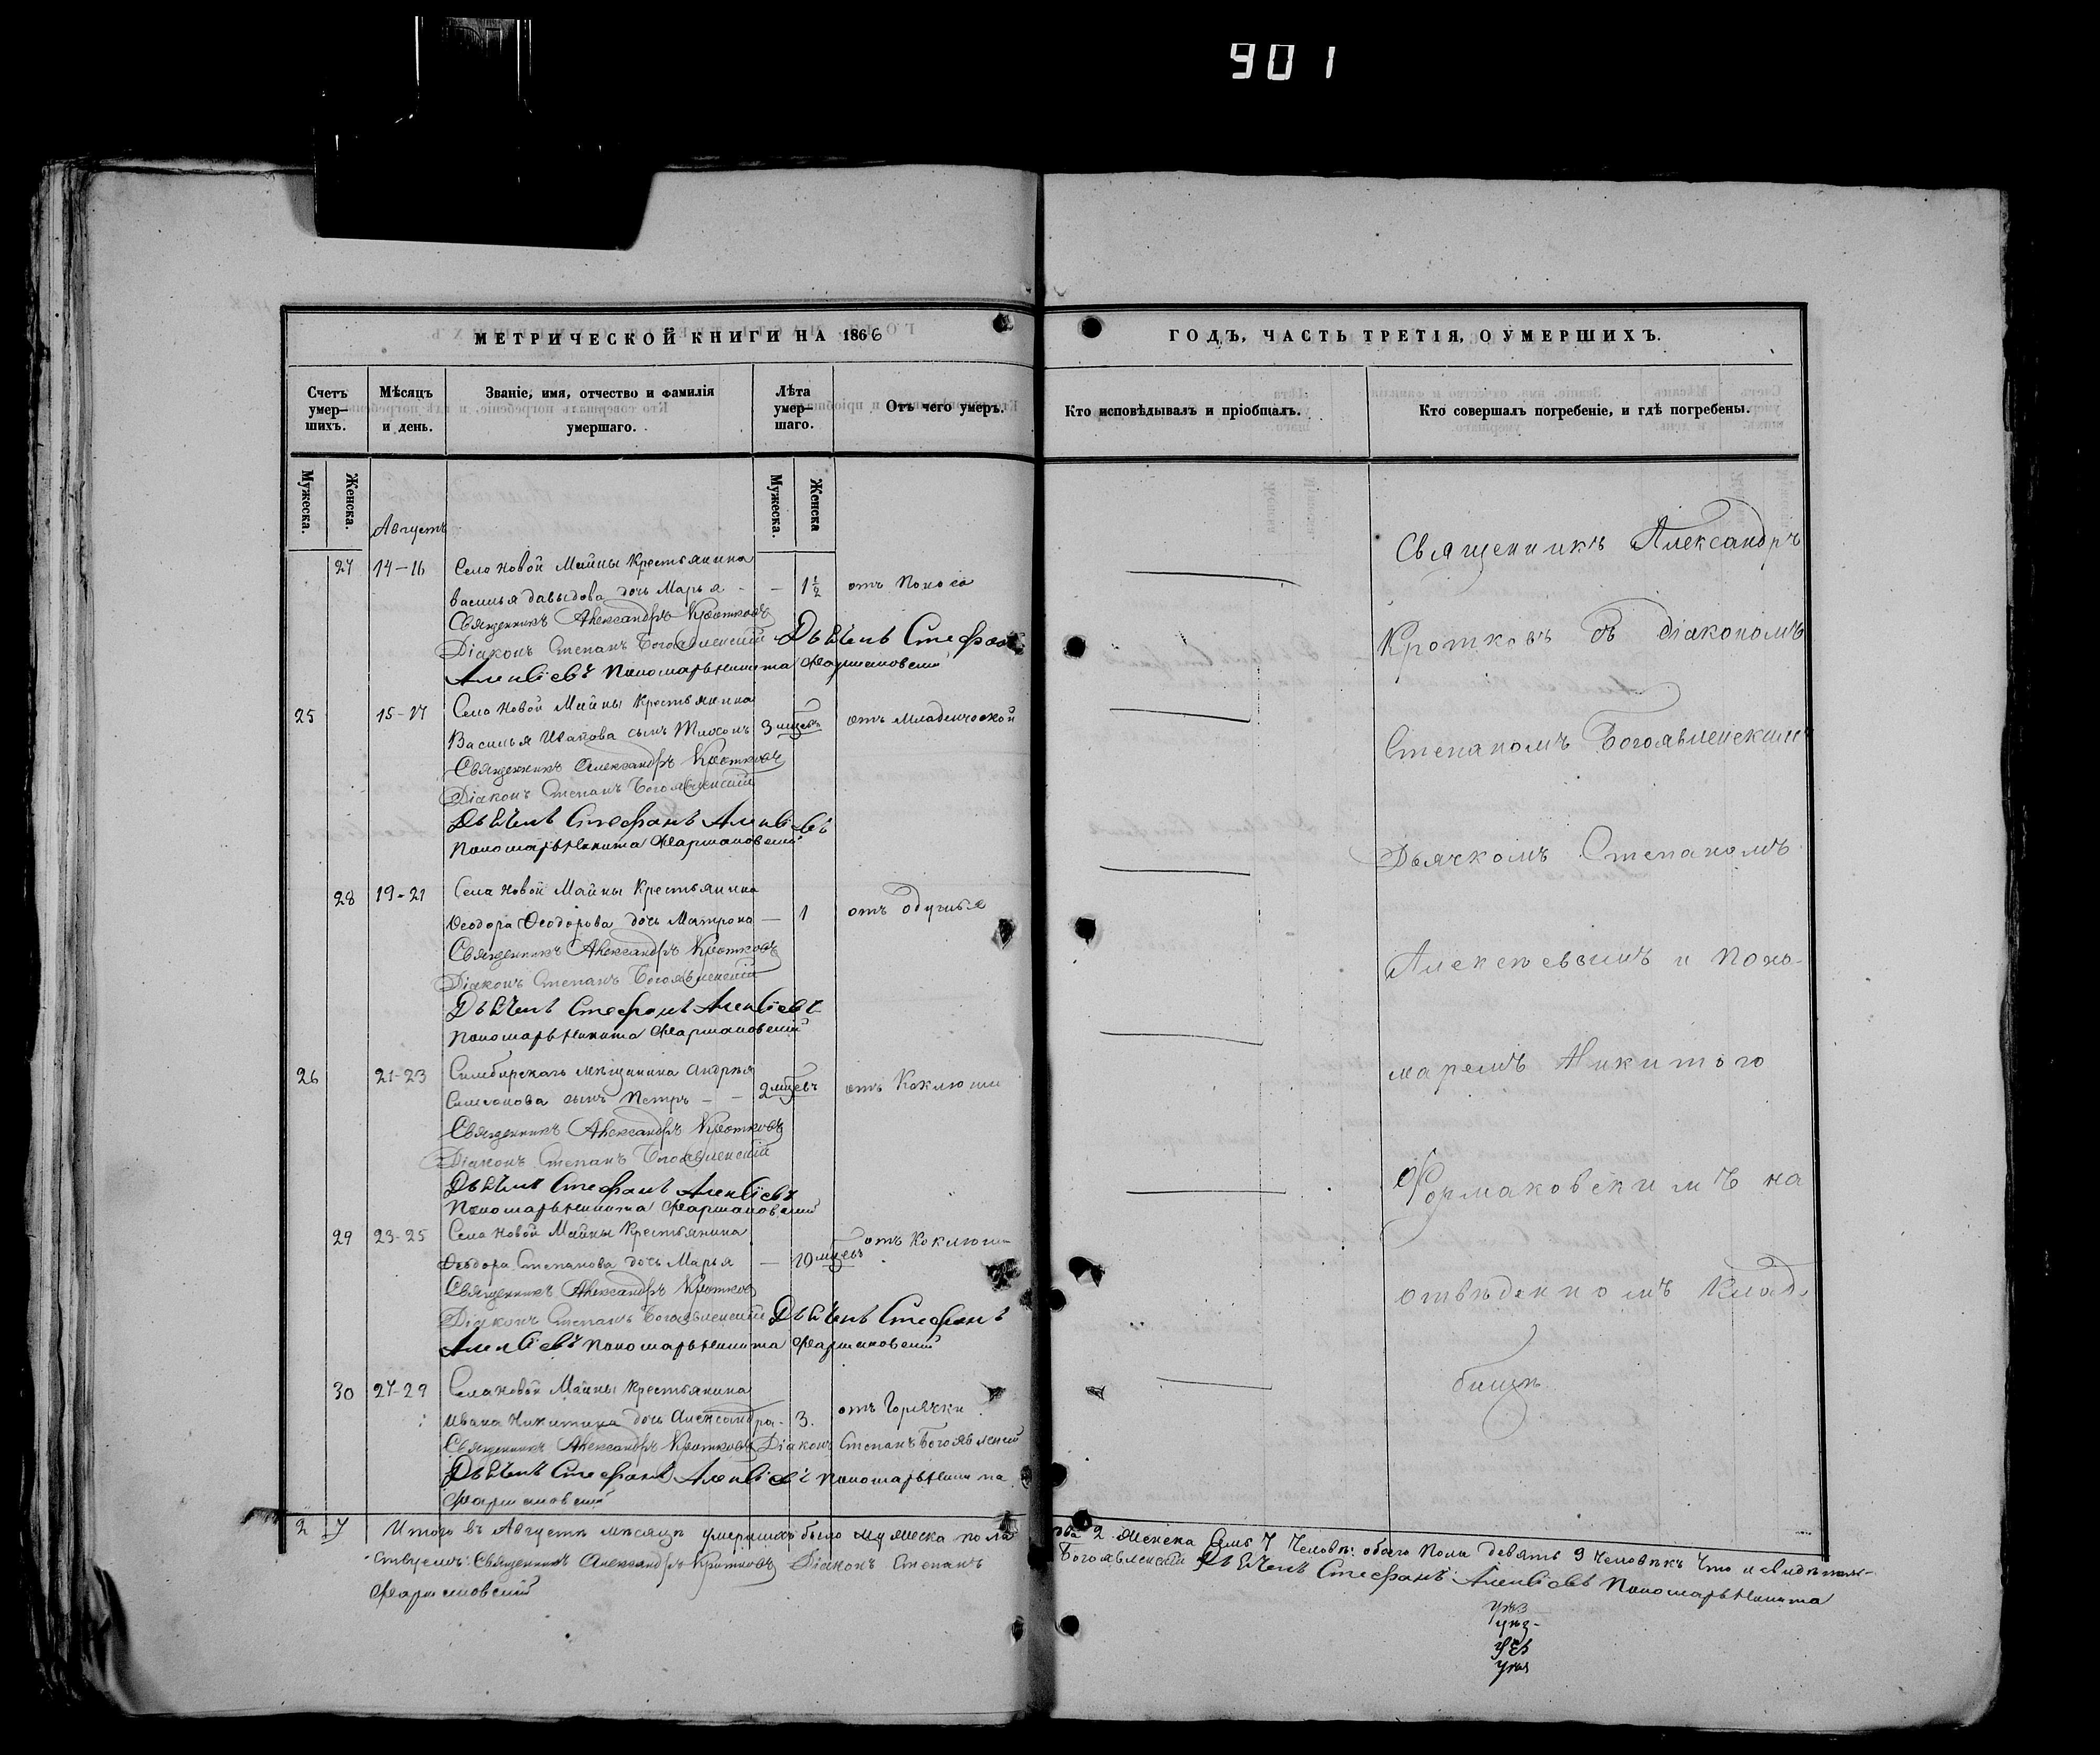 901
МЕТРИЧЕСКОЙ КНИГИ НА 1866
Счетъ умер-шихъ.
Мѣсяцъ и день.
Званіе, имя, отчество и фамилія умершаго.
Лѣта умер-шаго.
Отъ чего умеръ.
Мужеска.
Женска.
Мужеска.
Женска
Августъ
27 14-16 Села Новой Майны Крестьянина
Василья Давыдова дочь Марья - - 1 1/2 отъ Поноса
Священникъ Александръ Кротковъ
Діаконъ Степанъ Богоявленскій Дьячекъ Стефанъ
Алексіевъ Пономарь Никита Фармаковскій
25 15-17 Села Новой Майны Крестьянина
Василья Иванова сынъ Тихонъ 3 мцевъ отъ младенческой
Священникъ Александръ Кротковъ
Діаконъ Степанъ Богоявленскій
Дьячекъ Стефанъ Алексіевъ
Пономарь Никита Фармаковскій
28 19-21 Села Новой Майны Крестьянина
Ѳеодора Ѳеодорова дочь Матрона — 1 отъ
Священникъ Александръ Кротковъ
Діаконъ Степанъ Богоявленскій
Дьячекъ Стефанъ Алексіевъ
Пономарь Никита Фармаковскій
26 21-23 Симбирскаго мѣщанина Андрея
Симеонова сынъ Петръ - - 2 мцевъ отъ Коклюши
Священникъ Александръ Кротковъ
Діаконъ Степанъ Богоявленскій
Дьячекъ Стефанъ Алексіевъ
Пономарь Никита Фармаковскій
29 23-25 Села Новой Майны Крестьянина
Ѳеодора Степанова дочь Марья — 10 мцевъ отъ Коклюши
Священникъ Александръ Кротковъ
Діаконъ Степанъ Богоявленскій Дьячекъ Стефанъ
Алексіевъ Пономарь Никита Фармаковскій
30 27-29 Села Новой Майны Крестьянина
Ивана Никитина дочь Александра - 3. отъ Горячки
Священникъ Александръ Кротковъ Діаконъ Степанъ Богоявленскій
Дьячекъ Стефанъ Алексіевъ Пономарь Никита
Фармаковскій
2 7 Итого въ Августѣ мѣсяцѣ умершихъ было мужеска пола
ствуемъ: Священникъ Александръ Кротковъ Діаконъ Степанъ
Фармаковскій
ГОДЪ, ЧАСТЬ ТРЕТІЯ, О УМЕРШИХЪ.
Кто исповѣдывалъ и пріобщалъ.
Кто совершалъ погребеніе, и гдѣ погребены.
Священникъ Александръ
Кротковъ съ діакономъ
Степаномъ Богоявленскимъ
Дьячкомъ Степаномъ
Алексѣевымъ и Поно-
маремъ Никитою
Формаковскимъ на
отвѣденномъ Клад-
бищѣ
два 2 женска Семь 7 Человѣкъ: обоего пола девять 9 человѣкъ Что и свидѣтель-
Богоявленскій Дьячекъ Стефанъ Алексіевъ Пономарь Никита